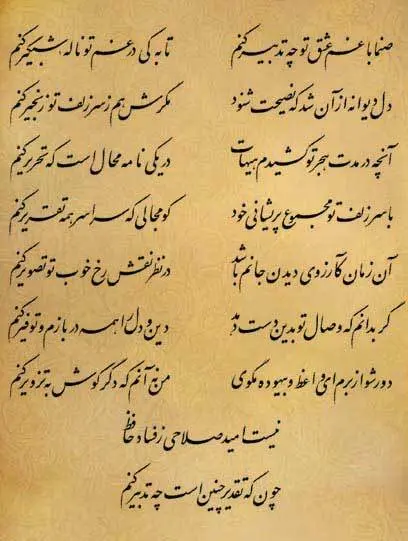 صنما با غم عشق تو چه تدبیر کنم تا به کی در غم تو ناله شبگیر کنم
دل دیوانه از آن شد که نصیحت شنود مگرش هم ز سر زلف تو زنجیر کنم
آنچه در مدت هجر تو کشیدم هیهات در یکی نامه محال است که تحریر کنم
با سر زلف تو مجموع پریشانی خود کو مجالی که سراسر همه تقریر کنم
آن زمان کآرزوی دیدن جانم باشد در نظر نقش رخ خوب تو تصویر کنم
گر بدانم که وصال تو بدین دست دهد دین و دل را همه دربازم و توفیر کنم
دور شو از برم ای واعظ و بیهوده مگوی من نه آنم که دگر گوش به تزویر کنم
نیست امید صلاحی ز فساد حافظ
چون که تقدیر چنین است چه تدبیر کنم